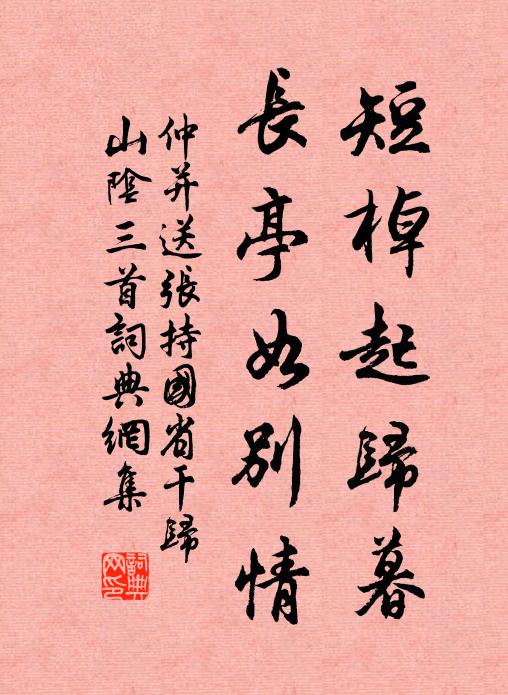 短棹起歸暮
長亭如別情
仲并送張持國省干歸
山陰三首詞典網集
詞典網印